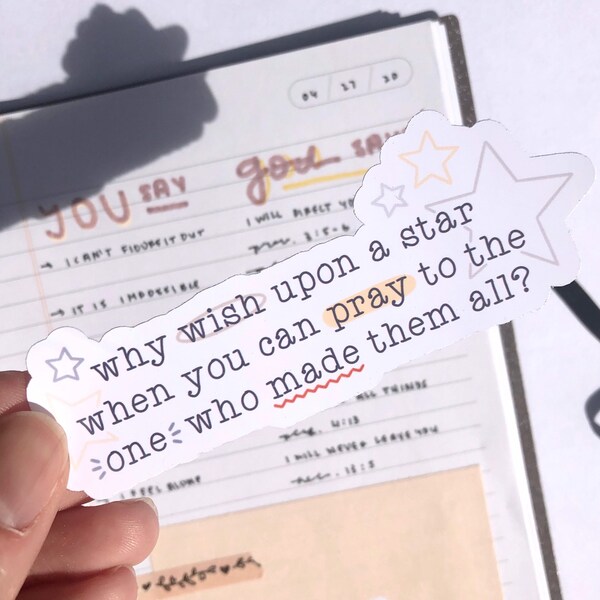 04 / 27 / 20
YOU SAY god SAY
→ I CAN'T FIGURE IT OUT
I WILL DIRECT
prov. 3:5-6
→ IT IS IMPOSSIBLE
why wish upon a star
when you can pray to the
one who made them all?
ALL THINGS
4:13
I WILL NEVER LEAVE YOU
I FEEL ALONE